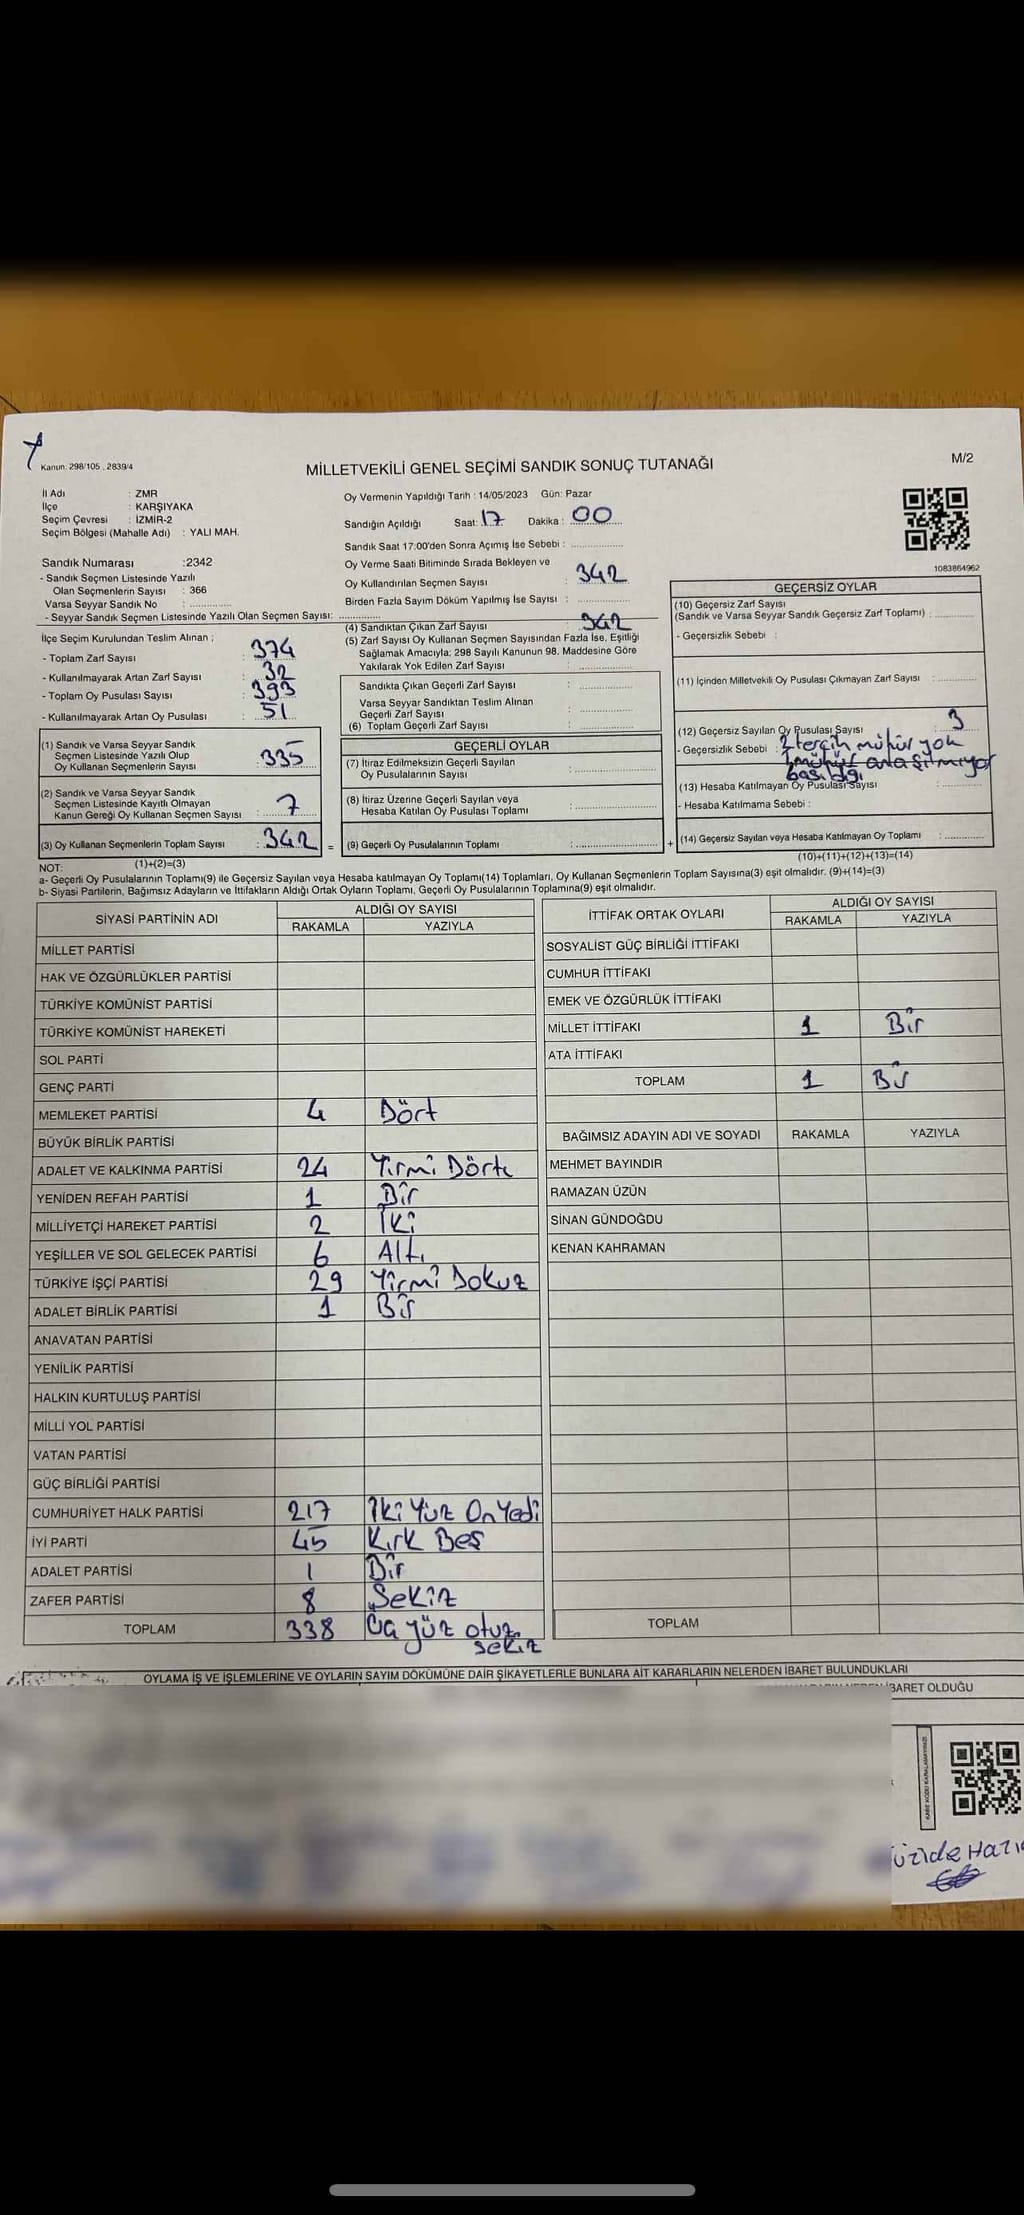 Kanun: 298/105 , 2839/4
MİLLETVEKİLİ GENEL SEÇİMİ SANDIK SONUÇ TUTANAĞI
M/2
İl Adı : ZMR
İlçe : KARŞIYAKA
Seçim Çevresi : İZMİR-2
Seçim Bölgesi (Mahalle Adı) : YALI MAH.
Sandık Numarası :2342
- Sandık Seçmen Listesinde Yazılı
Olan Seçmenlerin Sayısı : 366
Varsa Seyyar Sandık No :
- Seyyar Sandık Seçmen Listesinde Yazılı Olan Seçmen Sayısı:
Oy Vermenin Yapıldığı Tarih : 14/05/2023 Gün: Pazar
Sandığın Açıldığı Saat: 17 Dakika : 00
Sandık Saat 17:00'den Sonra Açımış İse Sebebi :
Oy Verme Saati Bitiminde Sırada Bekleyen ve
Oy Kullandırılan Seçmen Sayısı : 342
Birden Fazla Sayım Döküm Yapılmış İse Sayısı :
1083864962
İlçe Seçim Kurulundan Teslim Alınan ;
- Toplam Zarf Sayısı : 374
- Kullanılmayarak Artan Zarf Sayısı : 32
- Toplam Oy Pusulası Sayısı : 393
- Kullanılmayarak Artan Oy Pusulası : 51
(1) Sandık ve Varsa Seyyar Sandık
Seçmen Listesinde Yazılı Olup
Oy Kullanan Seçmenlerin Sayısı : 335
(2) Sandık ve Varsa Seyyar Sandık
Seçmen Listesinde Kayıtlı Olmayan
Kanun Gereği Oy Kullanan Seçmen Sayısı : 7
(3) Oy Kullanan Seçmenlerin Toplam Sayısı : 342 =
(1)+(2)=(3)
(4) Sandıktan Çıkan Zarf Sayısı : 342
(5) Zarf Sayısı Oy Kullanan Seçmen Sayısından Fazla İse, Eşitliği
Sağlamak Amacıyla; 298 Sayılı Kanunun 98. Maddesine Göre
Yakılarak Yok Edilen Zarf Sayısı :
Sandıkta Çıkan Geçerli Zarf Sayısı :
Varsa Seyyar Sandıktan Teslim Alınan
Geçerli Zarf Sayısı :
(6) Toplam Geçerli Zarf Sayısı :
GEÇERLİ OYLAR
(7) İtiraz Edilmeksizin Geçerli Sayılan
Oy Pusulalarının Sayısı :
(8) İtiraz Üzerine Geçerli Sayılan veya
Hesaba Katılan Oy Pusulası Toplamı :
(9) Geçerli Oy Pusulalarının Toplamı : +
GEÇERSİZ OYLAR
(10) Geçersiz Zarf Sayısı
(Sandık ve Varsa Seyyar Sandık Geçersiz Zarf Toplamı) :
- Geçersizlik Sebebi :
(11) İçinden Milletvekili Oy Pusulası Çıkmayan Zarf Sayısı :
(12) Geçersiz Sayılan Oy Pusulası Sayısı : 3
- Geçersizlik Sebebi : 2 tercih mühür yok
1 mühür anaşılmıyor
basıldığı
(13) Hesaba Katılmayan Oy Pusulası Sayısı :
- Hesaba Katılmama Sebebi :
(14) Geçersiz Sayılan veya Hesaba Katılmayan Oy Toplamı :
(10)+(11)+(12)+(13)=(14)
NOT:
a- Geçerli Oy Pusulalarının Toplamı(9) ile Geçersiz Sayılan veya Hesaba katılmayan Oy Toplamı(14) Toplamları, Oy Kullanan Seçmenlerin Toplam Sayısına(3) eşit olmalıdır. (9)+(14)=(3)
b- Siyasi Partilerin, Bağımsız Adayların ve İttifakların Aldığı Ortak Oyların Toplamı, Geçerli Oy Pusulalarının Toplamına(9) eşit olmalıdır.
SİYASİ PARTİNİN ADI
ALDIĞI OY SAYISI
RAKAMLA YAZIYLA
MİLLET PARTİSİ
HAK VE ÖZGÜRLÜKLER PARTİSİ
TÜRKİYE KOMÜNİST PARTİSİ
TÜRKİYE KOMÜNİST HAREKETİ
SOL PARTİ
GENÇ PARTİ
MEMLEKET PARTİSİ 4 Dört
BÜYÜK BİRLİK PARTİSİ
ADALET VE KALKINMA PARTİSİ 24 Yirmi Dört
YENİDEN REFAH PARTİSİ 1 Bir
MİLLİYETÇİ HAREKET PARTİSİ 2 İki
YEŞİLLER VE SOL GELECEK PARTİSİ 6 Altı
TÜRKİYE İŞÇİ PARTİSİ 29 Yirmi Dokuz
ADALET BİRLİK PARTİSİ 1 Bir
ANAVATAN PARTİSİ
YENİLİK PARTİSİ
HALKIN KURTULUŞ PARTİSİ
MİLLİ YOL PARTİSİ
VATAN PARTİSİ
GÜÇ BİRLİĞİ PARTİSİ
CUMHURİYET HALK PARTİSİ 217 İki Yüz On Yedi
İYİ PARTİ 45 Kırk Beş
ADALET PARTİSİ 1 Bir
ZAFER PARTİSİ 8 Sekiz
TOPLAM 338 Üç yüz otuz
sekiz
İTTİFAK ORTAK OYLARI
ALDIĞI OY SAYISI
RAKAMLA YAZIYLA
SOSYALİST GÜÇ BİRLİĞİ İTTİFAKI
CUMHUR İTTİFAKI
EMEK VE ÖZGÜRLÜK İTTİFAKI
MİLLET İTTİFAKI 1 Bir
ATA İTTİFAKI
TOPLAM 1 Bir
BAĞIMSIZ ADAYIN ADI VE SOYADI RAKAMLA YAZIYLA
MEHMET BAYINDIR
RAMAZAN ÜZÜN
SİNAN GÜNDOĞDU
KENAN KAHRAMAN
TOPLAM
OYLAMA İŞ VE İŞLEMLERİNE VE OYLARIN SAYIM DÖKÜMÜNE DAİR ŞİKAYETLERLE BUNLARA AİT KARARLARIN NELERDEN İBARET BULUNDUKLARI
BARET OLDUĞU
KARE KODU KARALAMAYINIZ!